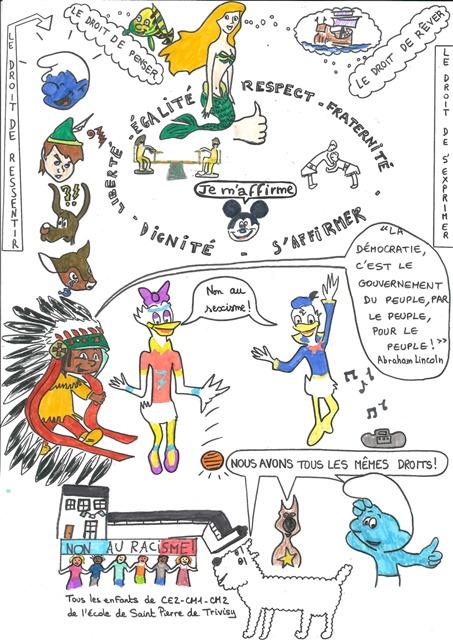 LE DROIT DE PENSER
LE DROIT DE RÊVER
LE DROIT DE RESSENTIR
LE DROIT DE S'EXPRIMER
LIBERTÉ - ÉGALITÉ RESPECT - FRATERNITÉ -
- DIGNITÉ - S'AFFIRMER
Je m'affirme
?!?
"LA
DÉMOCRATIE,
C'EST LE
GOUVERNEMENT
DU PEUPLE, PAR
LE PEUPLE,
POUR LE
PEUPLE !"
Abraham Lincoln
Non au
sexisme !
NOUS AVONS TOUS LES MÊMES DROITS !
NON AU RACISME !
Tous les enfants de CE2-CM1-CM2
de l'école de Saint Pierre de Trivisy